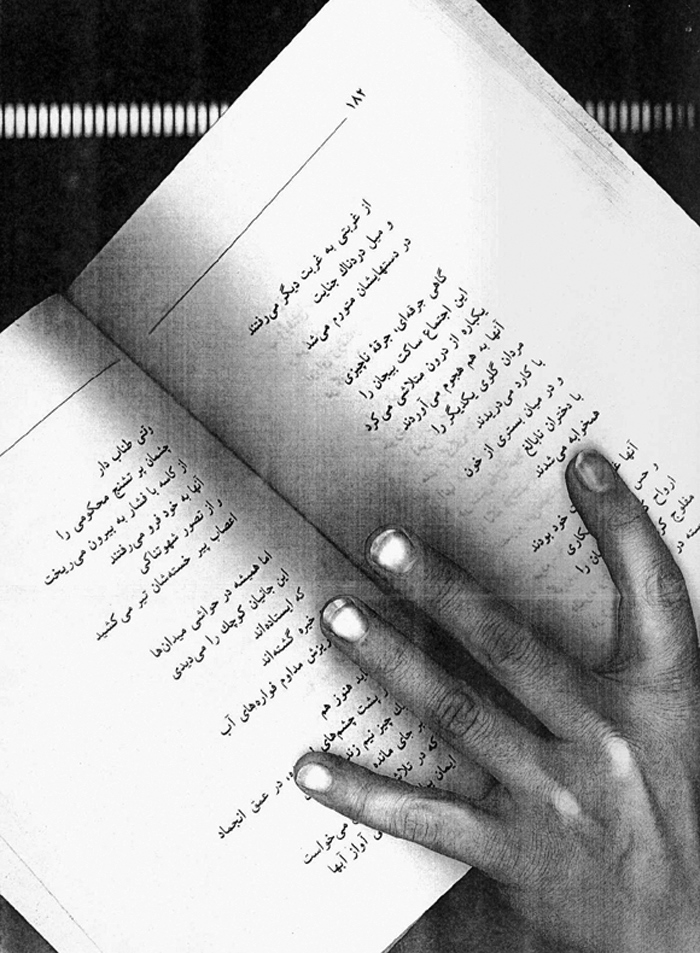 ۱۸۲
از غربتی به غربت دیگر می‌رفتند
و میل دردناك جنایت
در دستهایشان متورم می‌شد
گاهی جرقه‌ای، جرقهٔ ناچیزی
این اجتماع ساکت بیجان را
یکباره از درون متلاشی می‌کرد
آنها به هم هجوم می‌آوردند
مردان گلوی یکدیگر را
با کارد می‌دریدند
و در میان بستری از خون
با دختران نابالغ
همخوابه می‌شدند
آنها خود بودند
و حس
ارواح
مفلوج
در
وقتی طناب دار
چشمان پر تشنج محکومی را
از کاسه با فشار به بیرون می‌ریخت
آنها به خود فرو می‌رفتند
و از تصور شهوتناکی
اعصاب پیر خسته‌شان تیر می کشید
اما همیشه در حواشی میدان‌ها
این جانیان کوچك را می‌دیدی
که ایستاده‌اند
خیره گشته‌اند
ریزش مداوم فواره‌های آب
هنوز هم
پشت چشم‌های در عمق انجماد
چیز نیم
بر جای مانده
که در می‌خواست
ایمان آواز آبها